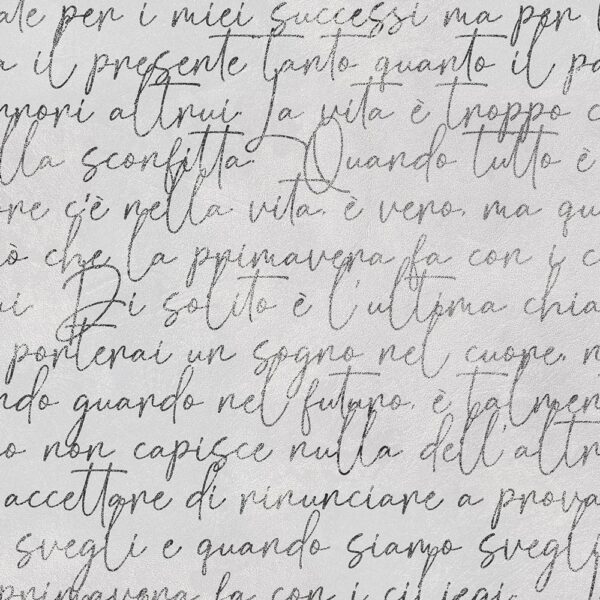 ale per i miei successi ma per
a il presente tanto quanto il pa
errori altrui. La vita è troppo c
lla sconfitta. Quando tutto è
ore c'è nella vita. è vero. ma qu
ò che la primavera fa con i c
ui. Di solito è l'ultima chia
porterai un sogno nel cuore. n
ndo guardo nel futuro. è talmen
o non capisce nulla dell'altr
accettare di rinunciare a prova
svegli e quando siamo svegli
primavera fa con i ciliegi.